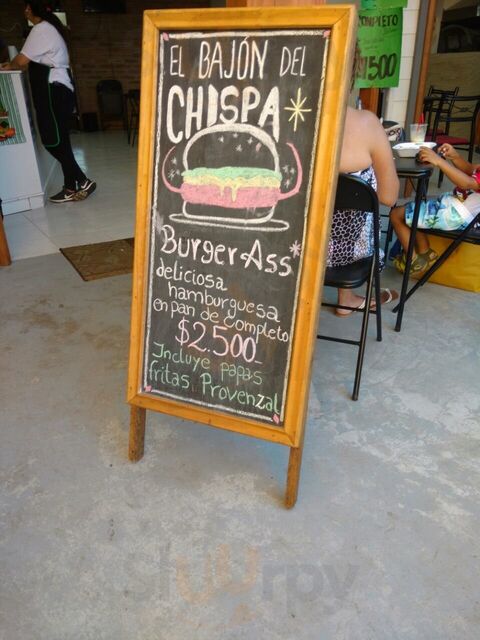 EL BAJÓN DEL
CHISPA
Burger-Ass
deliciosa
hamburguesa
en pan de completo
$2.500-
Incluye papas
fritas Provenzal
COMPLETO
$1500
Sluurpy